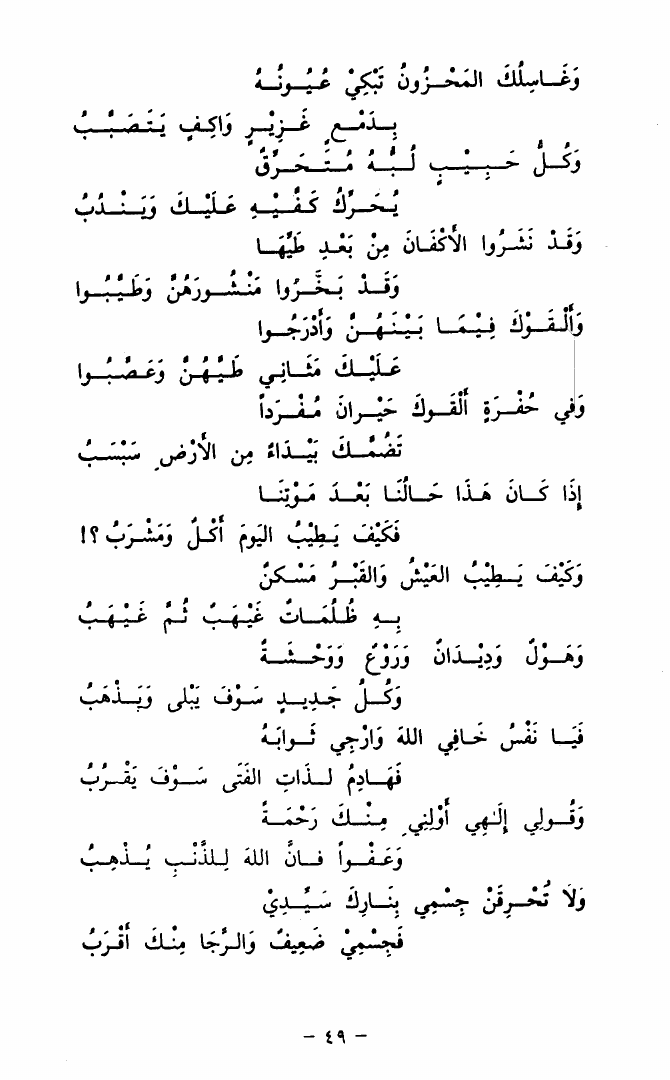 وَغَاسِلُكَ المَحْزُونُ تَبْكِيْ عُيُونُهُ
بِدَمْعٍ غَزِيْرٍ وَاكِفٍ يَتَصَبَّبُ
وَكُلُّ حَبِيْبٍ لُبُّهُ مُتَحَرِّقٌ
يُحَرِّكُ كَفَّيْهِ عَلَيْكَ وَيَنْدُبُ
وَقَدْ نَشَرُوا الأَكْفَانَ مِنْ بَعْدِ طَيِّهَا
وَقَدْ بَخَّرُوا مَنْشُورَهُنَّ وَطَيَّبُوا
وَأَلْقَوْكَ فِيْمَا بَيْنَهُنَّ وَأَدْرَجُوا
عَلَيْكَ مَثَانِي طَيِّهُنَّ وَعَصَّبُوا
وَفي حُفْرَةٍ أَلْقَوكَ حَيْرانَ مُفْرَداً
تَضُمُّكَ بَيْدَاءُ مِن الأَرْضِ سَبْسَبُ
إِذَا كَانَ هَذَا حَالُنَا بَعْدَ مَوْتِنَا
فَكَيْفَ يَطِيْبُ اليَومَ أَكْلٌ وَمَشْرَبُ ؟!
وَكَيْفَ يَطِيْبُ العَيْشُ وَالقَبْرُ مَسْكَنٌ
بِهِ ظُلُمَاتٌ غَيْهَبٌ ثُمَّ غَيْهَبُ
وَهَوْلٌ وَدِيْدَانٌ وَرَوْعٌ وَوَحْشَةٌ
وَكُلُّ جَدِيدٍ سَوْفَ يَبْلَى وَيَذْهَبُ
فَيَا نَفْسُ خَافِي اللهَ وَارْجِي ثَوابَهُ
فَهَادِمُ لَذَاتِ الفَتَى سَوْفَ يَقْرُبُ
وَقُولِي إِلَهِي أَوْلِنِي مِنْكَ رَحْمَةً
وَعَفْواً فَانَّ اللهَ لِلذَّنْبِ يُذْهِبُ
وَلاَ تُحْرِقَنْ جِسْمِي بِنَارِكَ سَيِّدِيْ
فَجِسْمِيْ ضَعِيفٌ وَالرَّجَا مِنْكَ أَقْرَبُ
- ٤٩ -